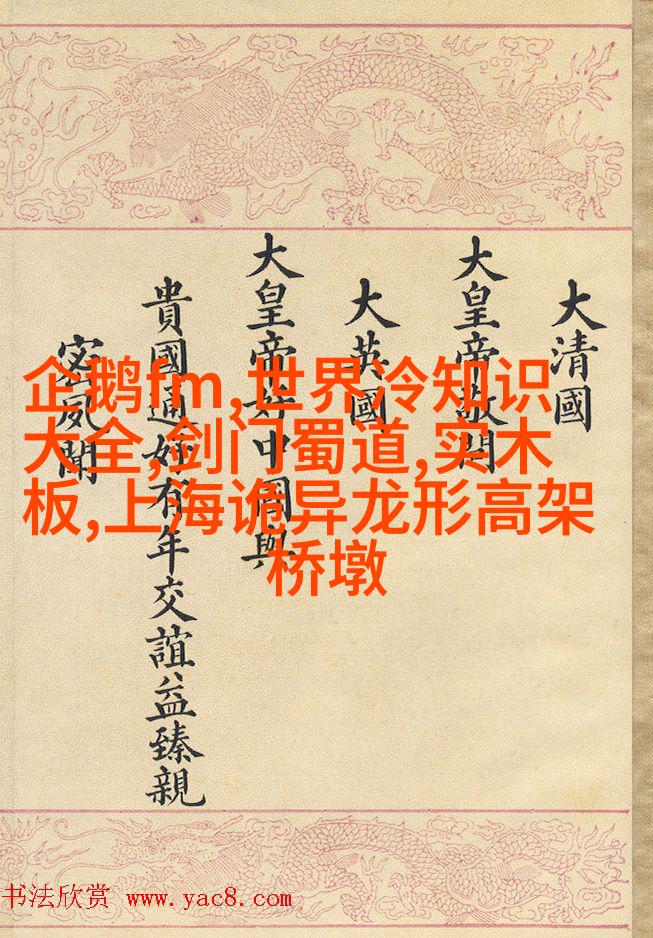 大清國
大皇帝敬問
大英國
大皇帝好中國與
貴國通好有年交誼益臻親
密夙聞
企鹅fm,世界冷知识
大全,剑门蜀道,实木
板,上海诡异龙形高架
桥墩
书法欣赏 www.yac8.com